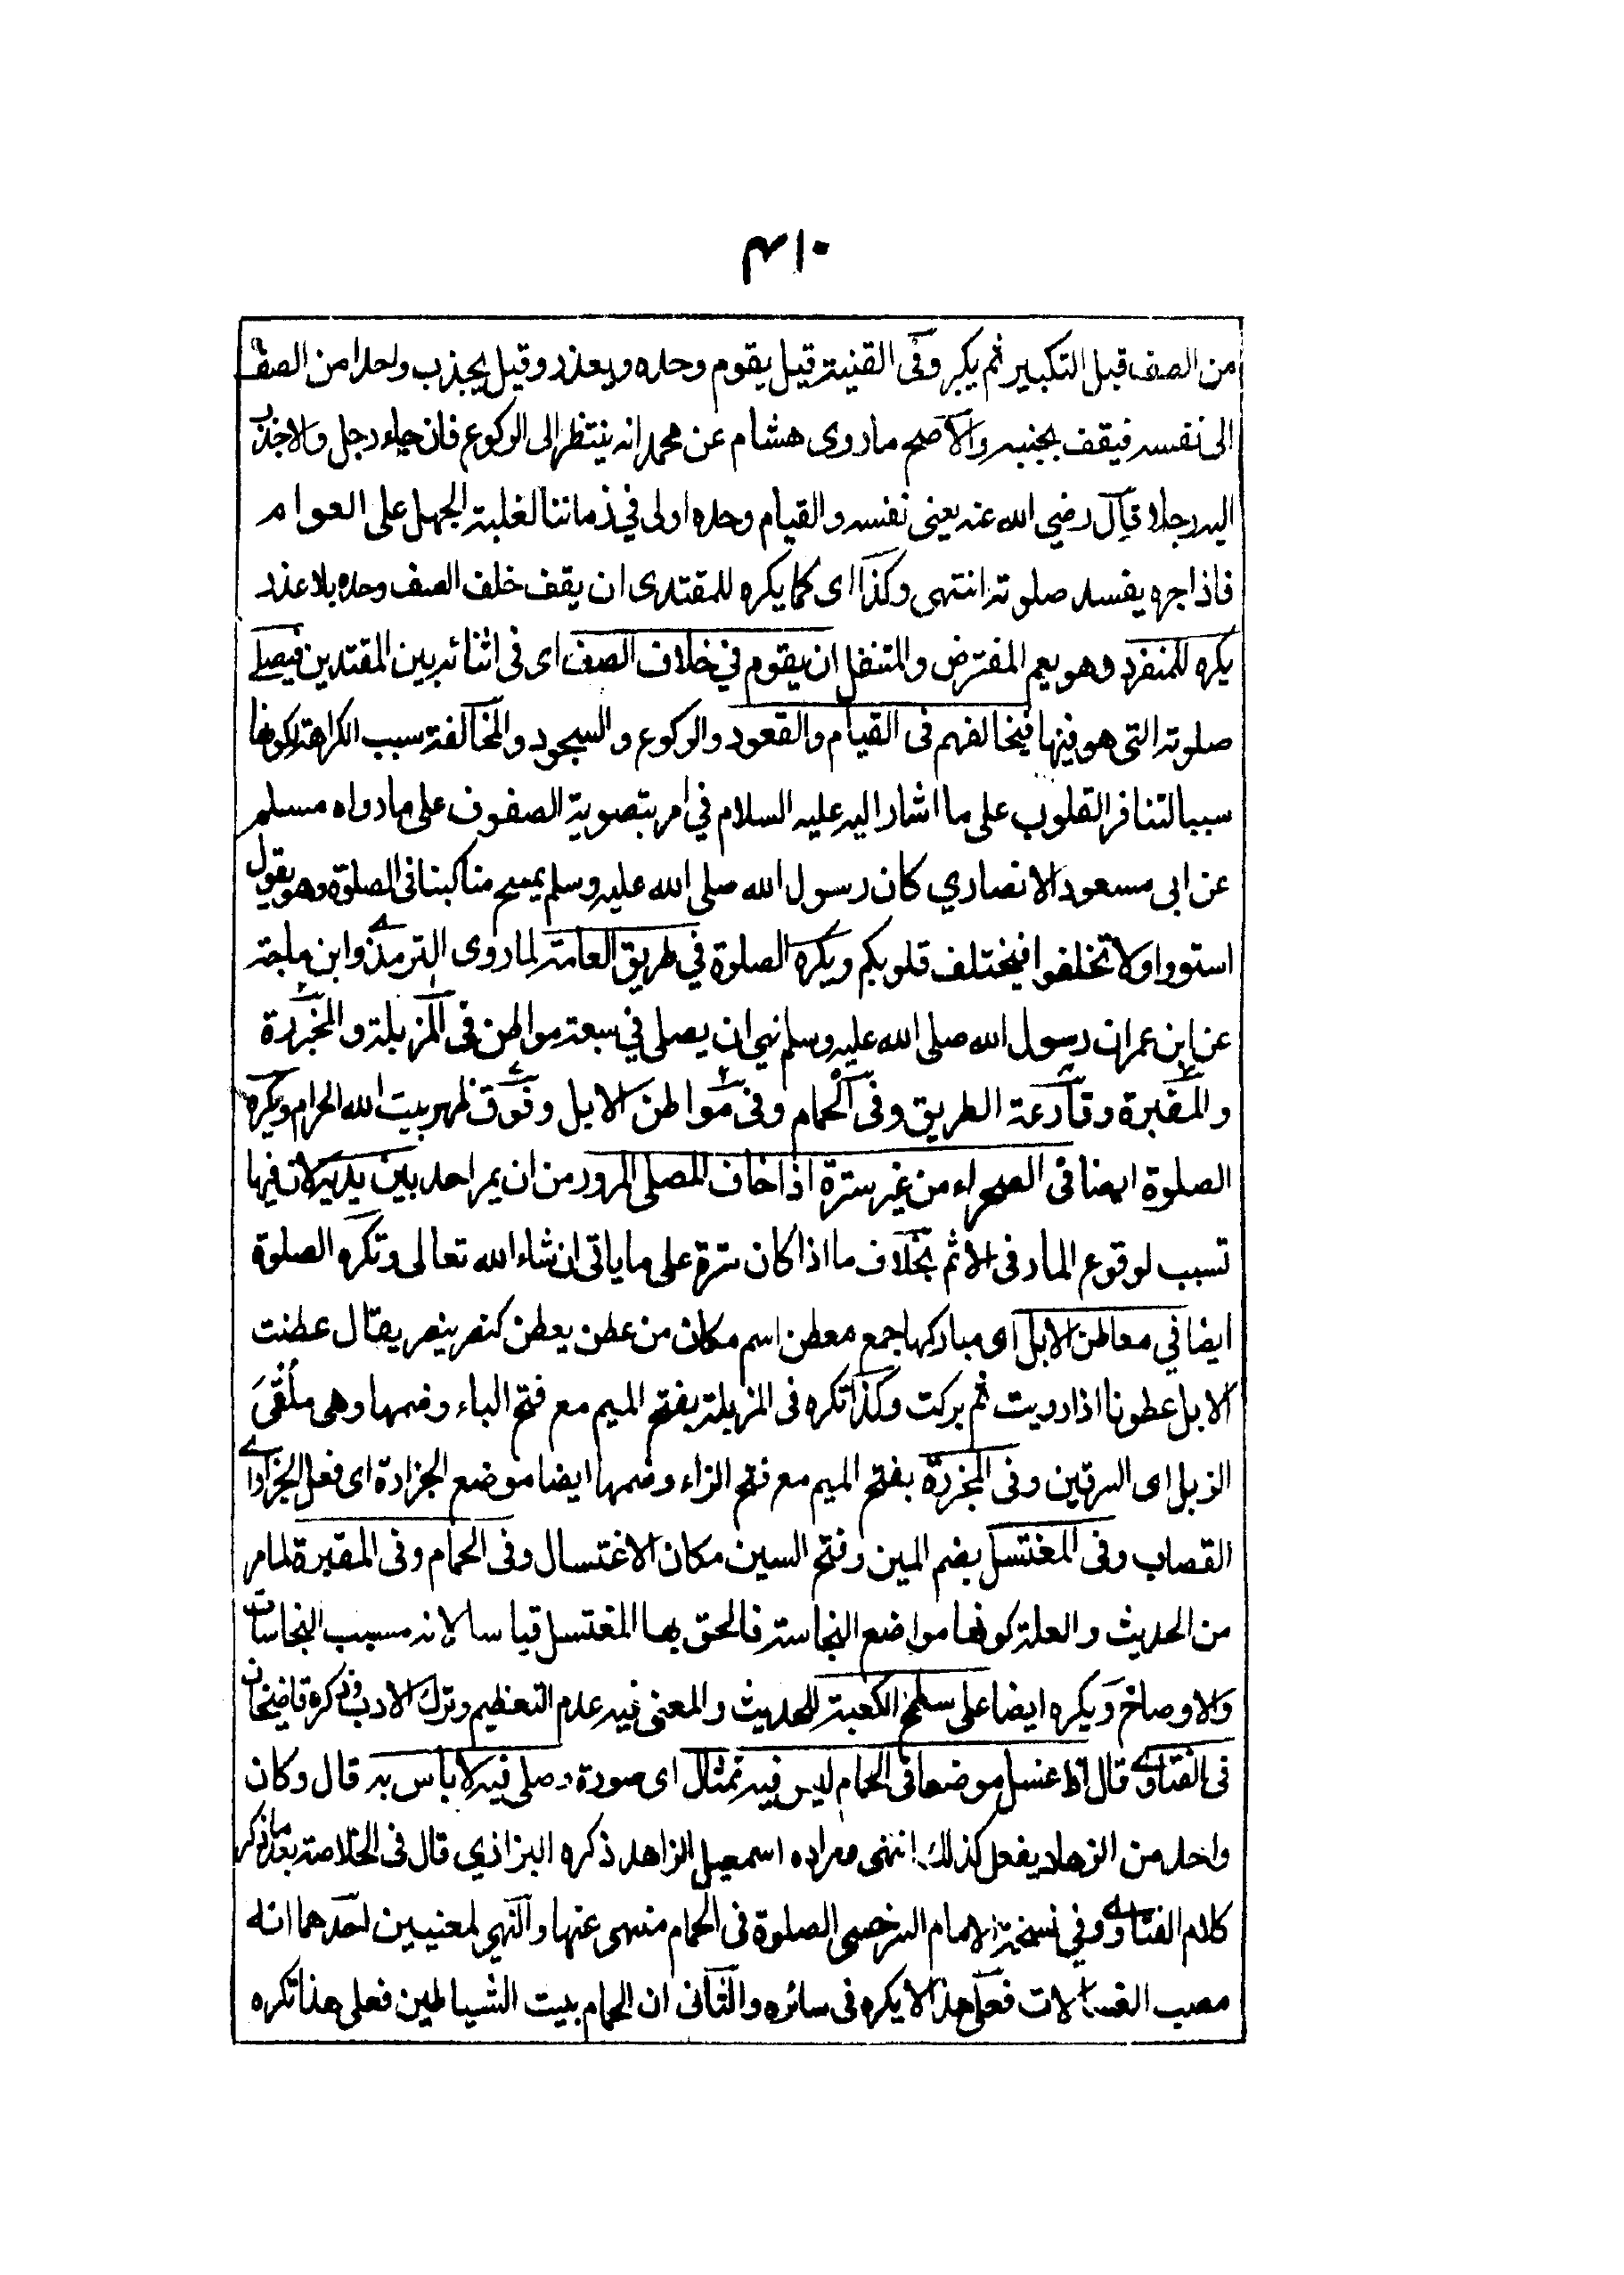 ٣١٠
من الصف قبل التكبير ثم يكبر وفى القنية قيل يقوم وحده ويعذر وقيل يجذب واحدا من الصف
الى نفسه فيقف بجنبه والاصح ما روى هشام عن محمد انه ينتظر الى الركوع فان جاء رجل والا جذب
اليه رجلا قال رضي الله عنه يعنى نفسه والقيام وحده اولى في زماننا لغلبة الجهل على العوام
فاذا جره يفسد صلوته انتهى وكذا اى كما يكره للمقتدى ان يقف خلف الصف وحده بلا عذر
يكره للمنفرد وهو يعم المفترض والمتنفل ان يقوم في خلاف الصف اى فى اثنائه بين المقتدين فيصلے
صلوته التى هو فيها فيخالفهم فى القيام والقعود والركوع والسجود والمخالفة سبب الكراهة لكونها
سببا لتنافر القلوب على ما اشار اليه عليه السلام في امر بتصوية الصفوف على ما رواه مسلم
عن ابى مسعود الانصاري كان رسول الله صلى الله عليه وسلم يمسح مناكبنا فى الصلوة وهو يقول
استووا ولا تختلفوا فيختلف قلوبكم ويكره الصلوة في طريق العامة لما روى الترمذے وابن ماجة
عن ابن عمر ان رسول الله صلى الله عليه وسلم نهى ان يصلى في سبعة مواطن فى المزبلة والمجزرة
والمقبرة وقارعة الطريق وفى الحمام وفى مواطن الابل وفوق ظهر بيت الله الحرام ويكره
الصلوة ايضا فى الصحراء من غير سترة اذا خاف المصلى المرور من ان يمر احد بين يديه لان فيها
تسبب لوقوع المار فى الاثم بخلاف ما اذا كان سترة على ما ياتى ان شاء الله تعالى وتكره الصلوة
ايضا في معاطن الابل اى مباركها جمع معطن اسم مكان من عطن يعطن كنصر ينصر يقال عطنت
الابل عطونا اذا رويت ثم بركت وكذا تكره فى المزبلة بفتح الميم مع فتح الباء وضمها وهى ملقى
الزبل اى السرقين وفى المجزرة بفتح الميم مع فتح الزاء وضمها ايضا موضع الجزارة اى فعل الجزار اے
القصاب وفى المغتسل بضم المين وفتح السين مكان الاغتسال وفى الحمام وفى المقبرة لما مر
من الحديث والعلة كونها مواضع النجاسة فالحق بها المغتسل قياسا لانه مسبب النجاسات
والاوصاخ ويكره ايضا على سطح الكعبة للحديث والمعنى فيه عدم التعظيم وترك الادب وذكره قاضيخان
فى الفتاوے قال اذا غسل موضعا فى الحمام ليس فيه تمثال اى صورة وصلى فيه لا باس به قال وكان
واحد من الزهاد يفعل كذلك انتهى ومراده اسمعيل الزاهد ذكره البزازي قال فى الخلاصة بعد ما ذكر
كلام الفتاوے وفي نسخة الامام السرخسى الصلوة فى الحمام منهى عنها والنهي لمعنيين احدهما انه
مصب الغسالات فعلى هذا لا يكره فى سائره والثانى ان الحمام بيت الشياطين فعلى هذا تكره